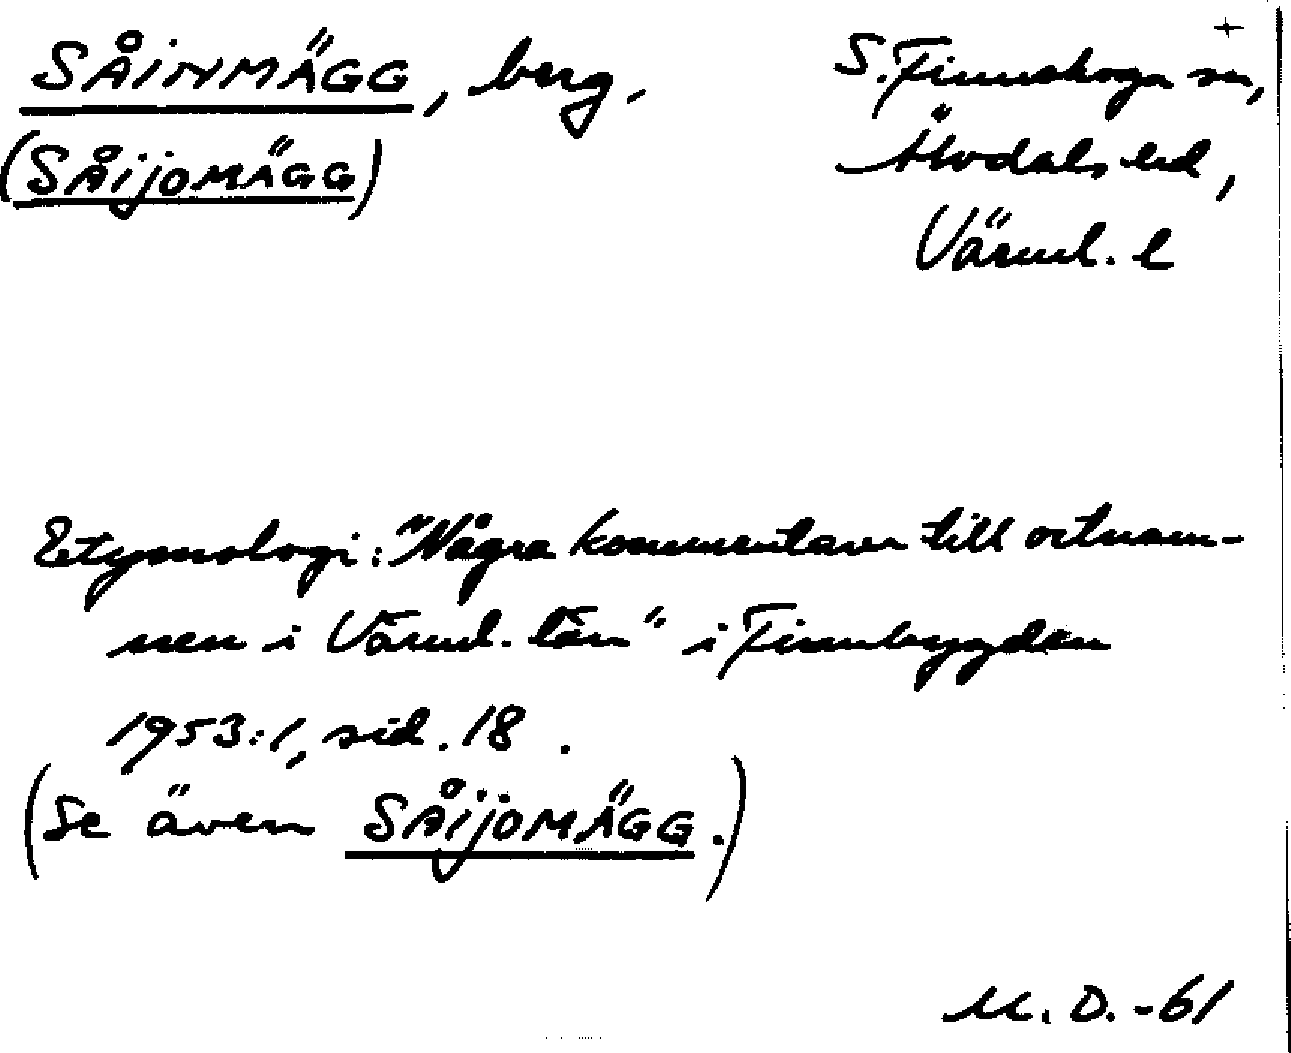 SÅINMÄGG, berg.
(SÅIJOMÄGG)
S. Finnskoga sn,
Älvdals hd,
Värml. l
Etymologi: "Några kommentarer till ortnam-
nen i Värml. län" i Finnbygden
1953:1, sid. 18.
(Se även SÅIJOMÄGG.)
M. D. -61